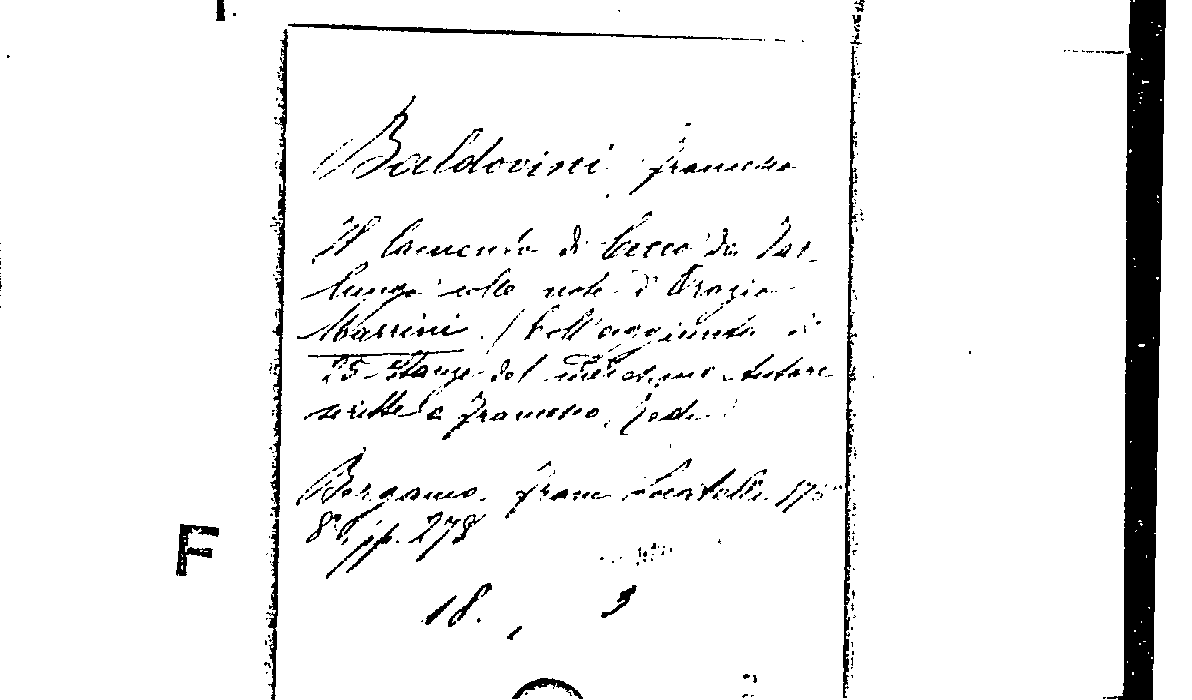 F
Baldovini Francesco
Il lamento di Cecco da Var-
lungo colle note d' Orazio
Marrini. (Coll'aggiunta di
25 Stanze del medesimo Autore
scritte a Francesco Redi)
Bergamo. Franc Locatelli. 175
8° pp. 278
18. , 3